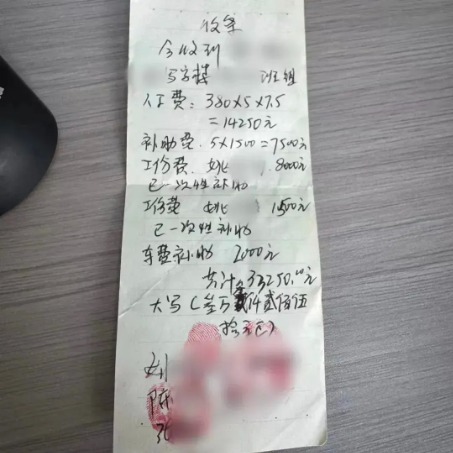 收条
今收到
写字楼 班组
人工费：380×5×7.5
=14250元
补助费：5×1500=7500元
工伤费 姚 8000元
已一次性补助
工伤费 姚 1500元
已一次性补助
车费补助 2000元
共计 33250.00元
大写（叁万 仟贰佰伍
拾元正）
刘
陈
张